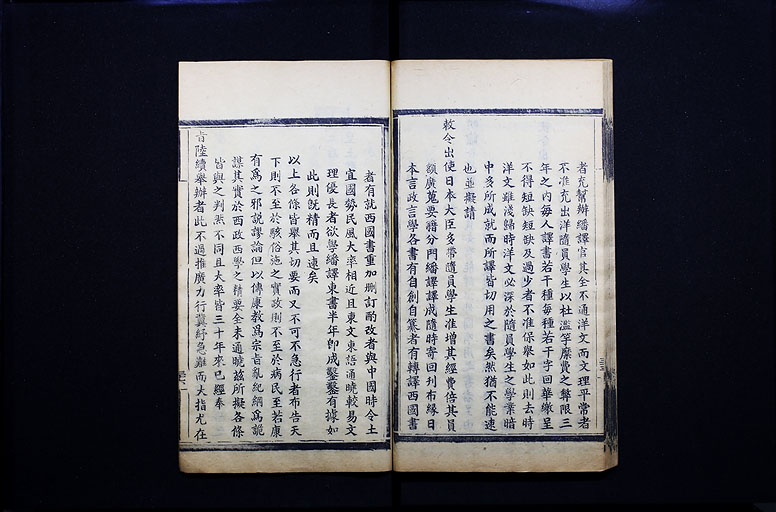 者充幫辦繙譯官其全不通洋文而文理平常者
不准充出洋隨員學生以杜濫竽糜費之弊限三
年之內每人譯書若干種每種若干字回華繳呈
不得短缺短缺及過少者不准保舉如此則去時
洋文雖淺歸時洋文必深於隨員學生之學業暗
中多所成就而所譯皆切用之書矣然猶不能速
也並擬請
敕令出使日本大臣多帶隨員學生准增其經費倍其員
額廣蒐要籍分門繙譯譯成隨時寄回刊布緣日
本言政言學各書有自創自纂者有轉譯西國書
者有就西國書重加刪訂酌改者與中國時令土
宜國勢民風大率相近且東文東語通曉較易文
理優長者欲學繙譯東書半年即成鑿鑿有據如
此則既精而且速矣
以上各條皆舉其切要而又不可不急行者布告天
下則不至於駭俗施之實政則不至於病民至若康
有爲之邪説謬論但以傳康教爲宗旨亂紀綱爲詭
謀其實於西政西學之精要全未通曉茲所擬各條
皆與之判然不同且大率皆三十年來已經奉
旨陸續舉辦者此不過推廣力行冀紓急難而大指尤在